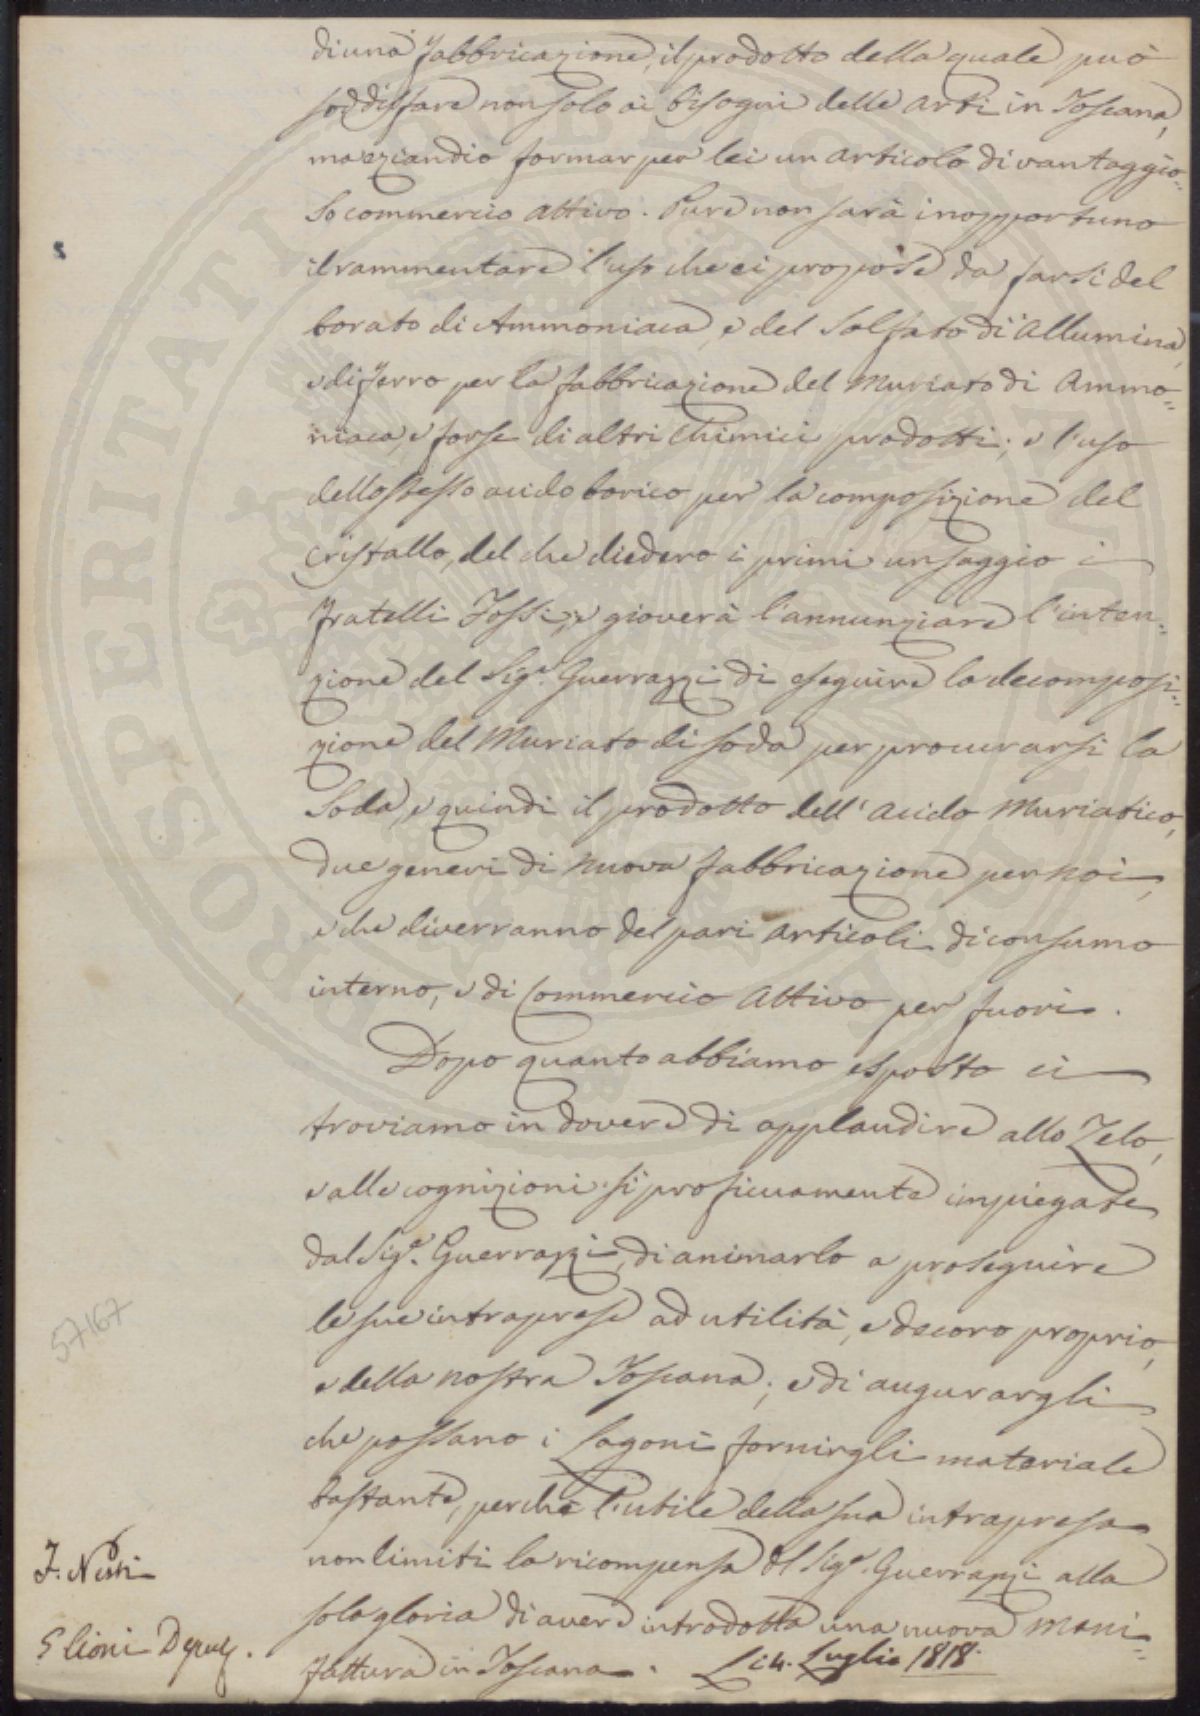 di una fabbricazione, il prodotto della quale può
soddisfare non solo ai bisogni delle Arti in Toscana,
ma eziandio formar per lei un articolo di vantaggio=
so commercio attivo. Pure non sarà inopportuno
il rammentare l'uso che ei propose da farsi del
borato di Ammoniaca, e del Solfato di Allumina,
e di ferro per la fabbricazione del Muriato di Ammo=
niaca, e forse di altri Chimici prodotti; e l'uso
dello stesso acido borico per la composizione del
Cristallo, del che diedero i primi un saggio i
fratelli Fossi; e gioverà l'annunziare l'inten=
zione del Sig.r Guerrazzi di eseguire la decomposi=
zione del Muriato di soda per procurarsi la
Soda, e quindi il prodotto dell'Acido Muriatico,
due generi di nuova fabbricazione per noi,
e che diverranno del pari articoli di consumo
interno, e di Commercio Attivo per fuori.
Dopo quanto abbiamo esposto ci
troviamo in dovere di applaudire allo Zelo,
e alle cognizioni sì proficuamente impiegate
dal Sig.r Guerrazzi, di animarlo a proseguire
le sue intraprese ad utilità, e decoro proprio,
e della nostra Toscana; e di augurargli
che possano i Lagoni fornirgli materiale
bastante, perchè l'utile della sua intrapresa
non limiti la ricompensa del Sig.r Guerrazzi alla
sola gloria di avere introdotta una nuova Mani=
fattura in Toscana. Li 4. Luglio 1818.
F. Nesti
57167
PROSPERITATI PUBLICAE